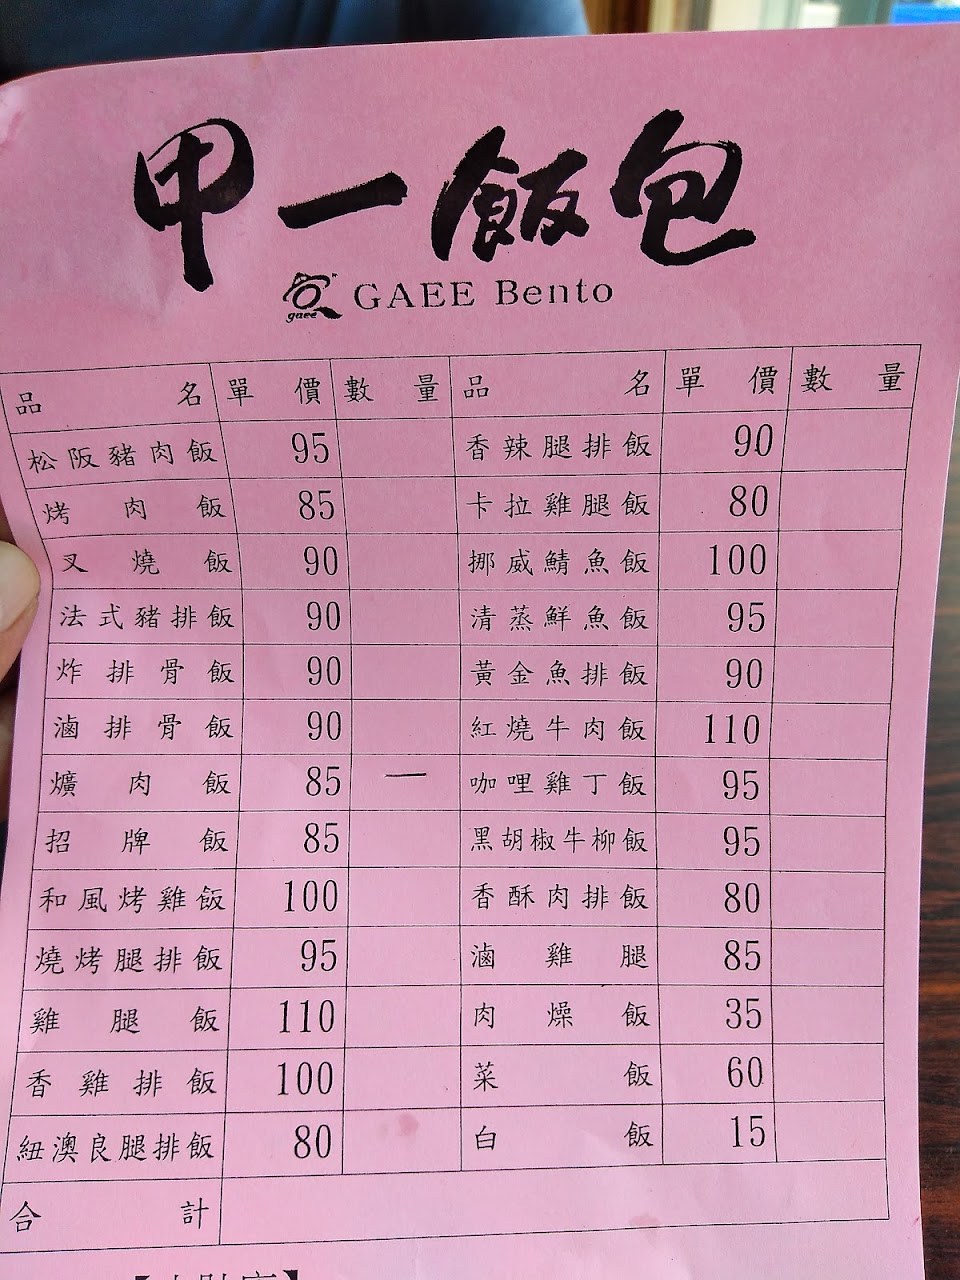 甲一飯包
gaee GAEE Bento
品名 單價 數量 品名 單價 數量
松阪豬肉飯 95 香辣腿排飯 90
烤肉飯 85 卡拉雞腿飯 80
叉燒飯 90 挪威鯖魚飯 100
法式豬排飯 90 清蒸鮮魚飯 95
炸排骨飯 90 黃金魚排飯 90
滷排骨飯 90 紅燒牛肉飯 110
爌肉飯 85 一 咖哩雞丁飯 95
招牌飯 85 黑胡椒牛柳飯 95
和風烤雞飯 100 香酥肉排飯 80
燒烤腿排飯 95 滷雞腿 85
雞腿飯 110 肉燥飯 35
香雞排飯 100 菜飯 60
紐澳良腿排飯 80 白飯 15
合計